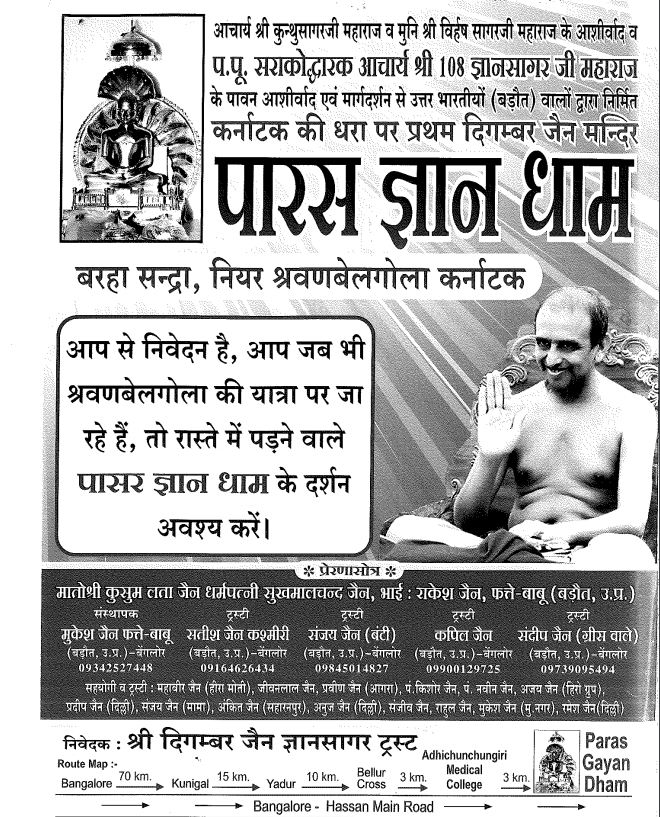 आचार्य श्री कुन्थुसागरजी महाराज व मुनि श्री विर्हष सागरजी महाराज के आशीर्वाद व
प.पू. सराकोद्धारक आचार्य श्री 108 ज्ञानसागर जी महाराज
के पावन आशीर्वाद एवं मार्गदर्शन से उत्तर भारतीयों (बड़ौत) वालों द्वारा निर्मित
कर्नाटक की धरा पर प्रथम दिगम्बर जैन मन्दिर
पारस ज्ञान धाम
बरहा सन्द्रा, नियर श्रवणबेलगोला कर्नाटक
आप से निवेदन है, आप जब भी
श्रवणबेलगोला की यात्रा पर जा
रहे हैं, तो रास्ते में पड़ने वाले
पासर ज्ञान धाम के दर्शन
अवश्य करें।
* प्रेरणास्रोत *
मातोश्री कुसुम लता जैन धर्मपत्नी सुखमालचन्द जैन, भाई : राकेश जैन, फत्ते-बाबू (बड़ौत, उ.प्र.)
संस्थापक ट्रस्टी ट्रस्टी ट्रस्टी ट्रस्टी
मुकेश जैन फत्ते-बाबू सतीश जैन कश्मीरी संजय जैन (बंटी) कपिल जैन संदीप जैन (ग्रीस वाले)
(बड़ौत, उ.प्र.)-बेंगलोर (बड़ौत, उ.प्र.)-बेंगलोर (बड़ौत, उ.प्र.)-बेंगलोर (बड़ौत, उ.प्र.)-बेंगलोर (बड़ौत, उ.प्र.)-बेंगलोर
09342527448 09164626434 09845014827 09900129725 09739095494
सहयोगी व ट्रस्टी : महावीर जैन (हीरा मोती), जीवनलाल जैन, प्रवीण जैन (आगरा), पं.किशोर जैन, पं. नवीन जैन, अजय जैन (हिंगे ग्रुप),
प्रदीप जैन (दिल्ली), संजय जैन (मामा), अंकित जैन (सहारनपुर), अनुज जैन (दिल्ली), संजीव जैन, राहुल जैन, मुकेश जैन (मु.नगर), रमेश जैन(दिल्ली)
निवेदक : श्री दिगम्बर जैन ज्ञानसागर ट्रस्ट
Route Map :-
Bangalore 70 km. Kunigal 15 km. Yadur 10 km. Bellur Cross 3 km. Adhichunchungiri Medical College 3 km.
Paras
Gayan
Dham
Bangalore - Hassan Main Road